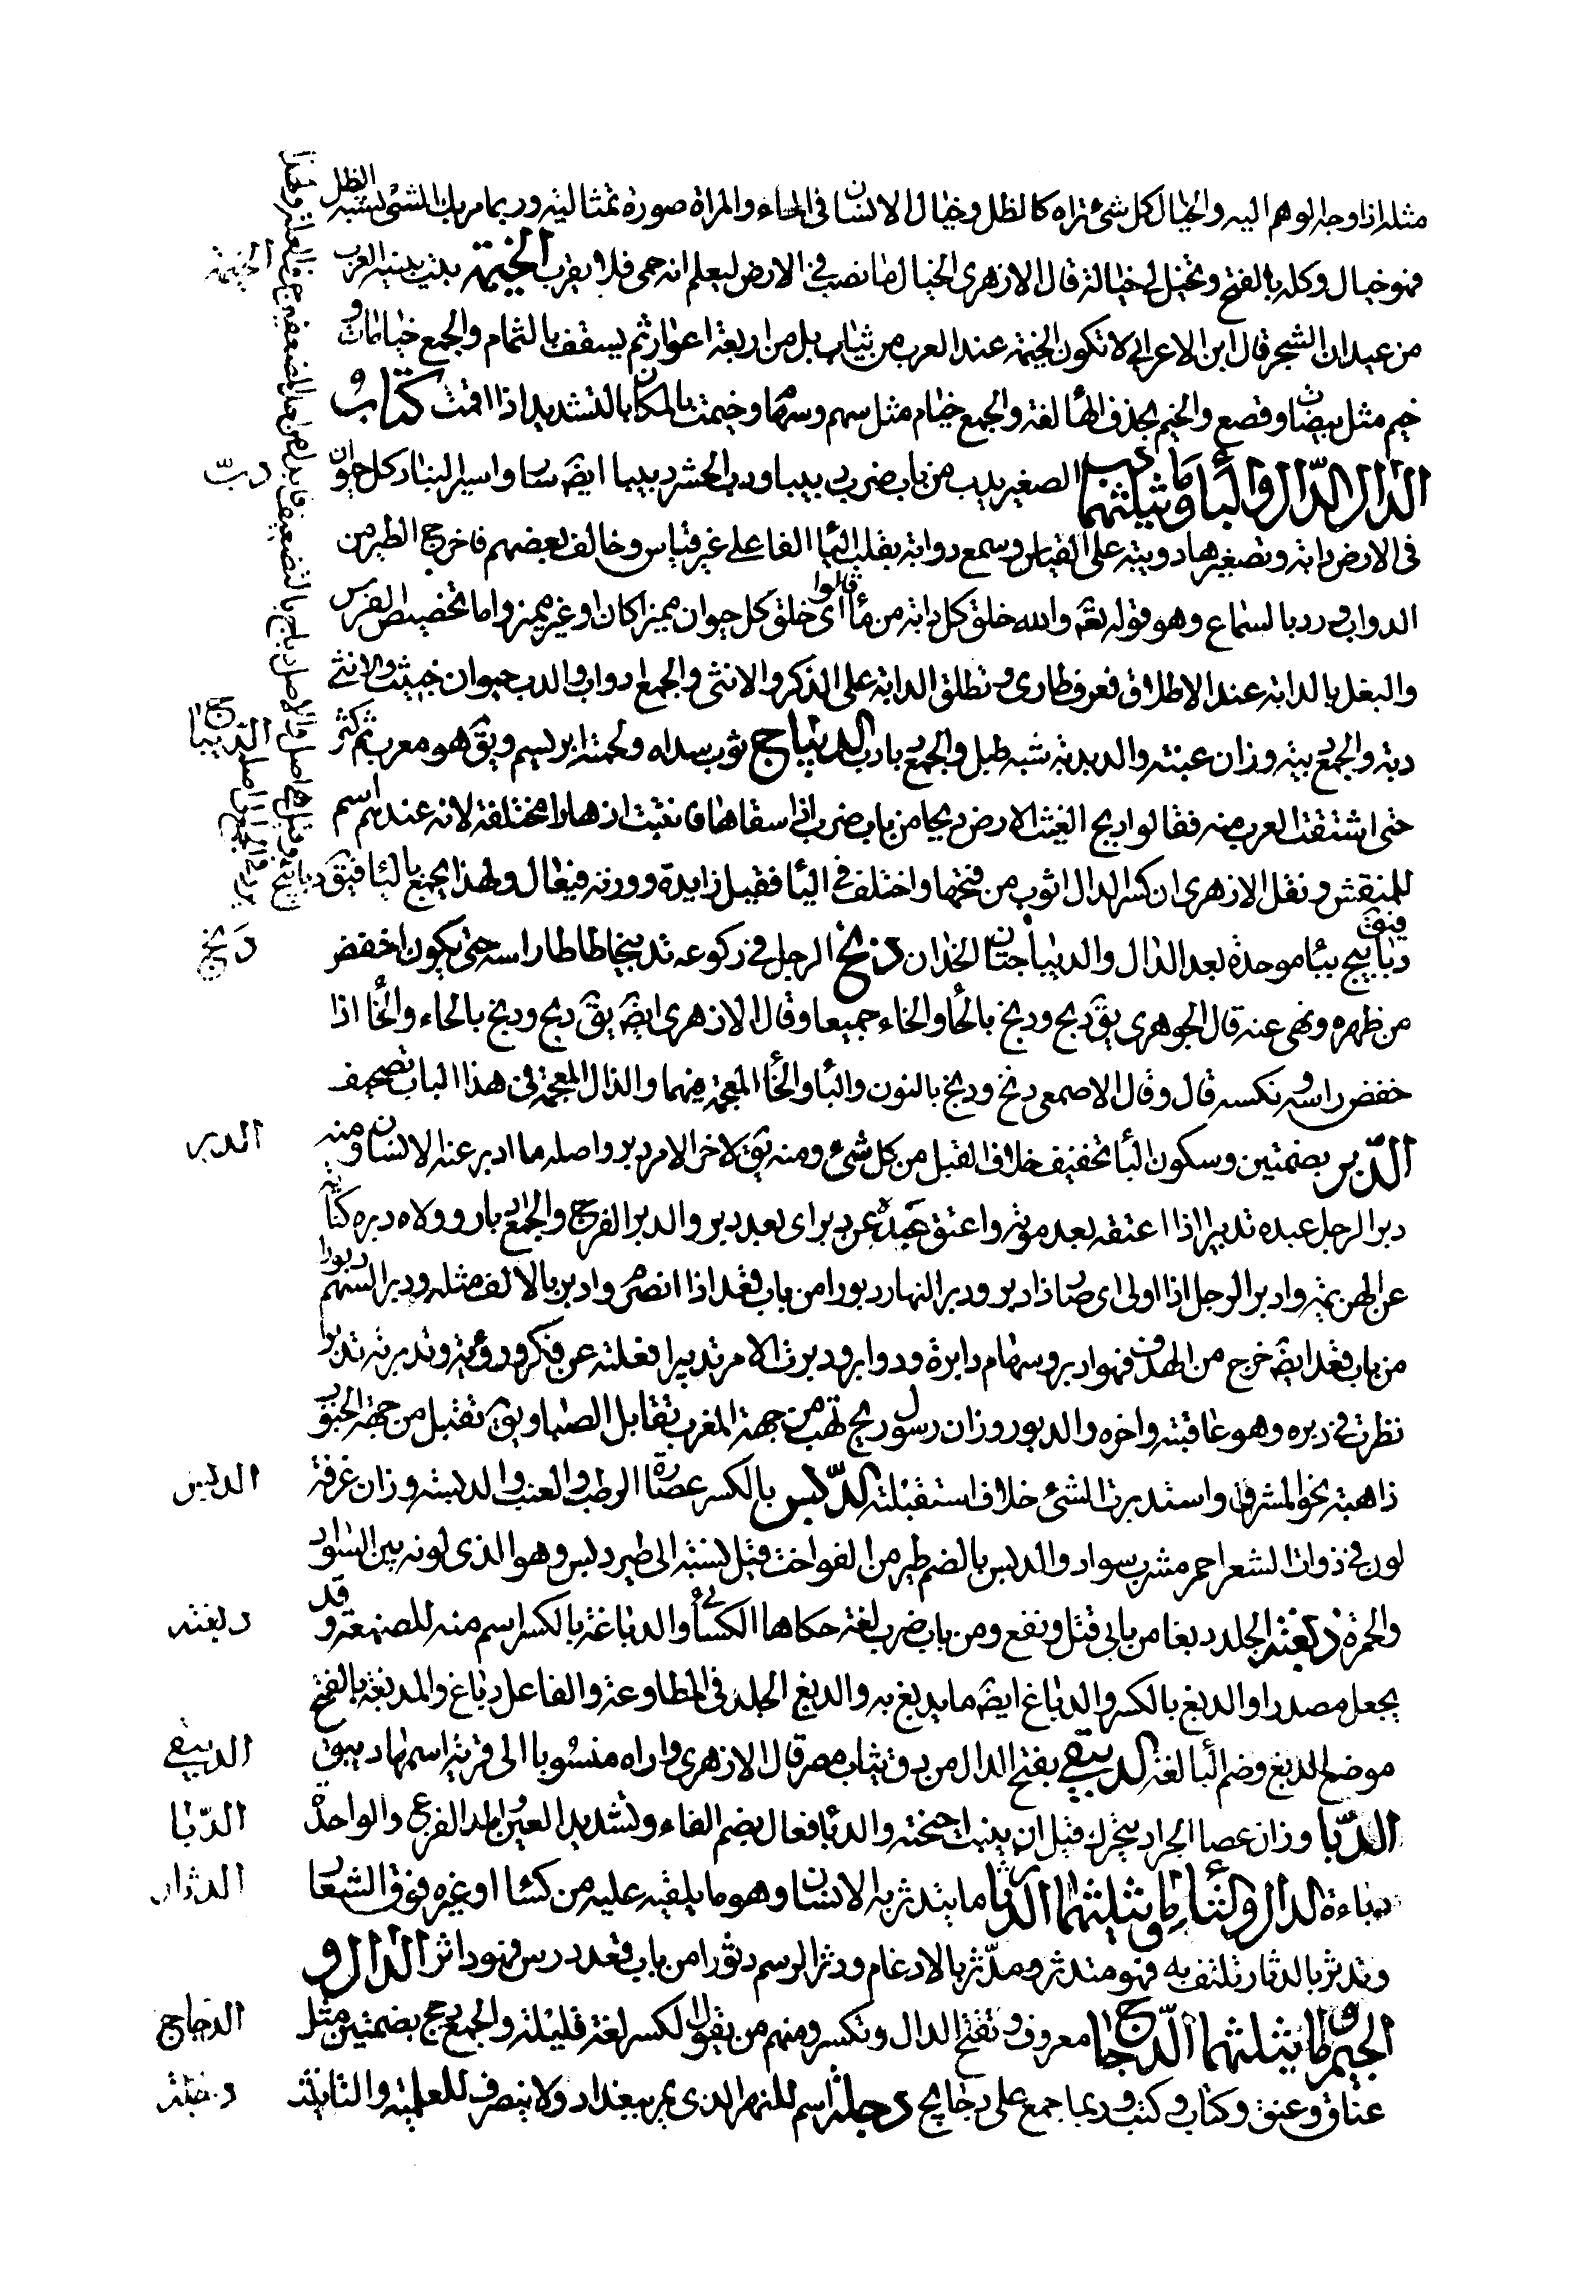 مثله اذا وجه لوهم اليه والخيال كل شئ تراه كالظل وخيال الانسان فى الماء والمراة صورة تمثاليه وربما مر بك الشئ يشبه الظل
فهو خيال وكله بالفتح وتخيل لى خيالة قال الازهرى الخيال ما نصب فى الارض ليعلم انه حمى فلا يقرب الخيمة بيت يبنيه العرب
من عيدان الشجر قال ابن الاعرابى لا تكون الخيمة عند العرب من ثياب بل من اربعة اعواد ثم يسقف بالثمام والجمع خيامات و
خيم مثل بيضات وقصع والخيم بحذف الها لغة والجمع خيام مثل سهم وسهام وخيمت بالمكان بالتشديد اذا اقمت كتاب
الدال الدال والبا وما يثلثهما دب الصغير يدب من باب ضرب دبيبا ودب الجيش دبيبا ايضا ساروا سيرا لينا وكل حيوان
فى الارض دابة وتصغيرها دويبة على القياس وسمع دوابة بقلب اليا الفا على غير قياس وخالف بعضهم فاخرج الطير من
الدواب ورد بالسماع وهو قوله تعه والله خلق كل دابة من ما قالوا اى خلق كل حيوان مميزا كان او غير مميز واما تخصيص الفرس
والبغل بالدابة عند الاطلاق فعرف طارى وتطلق الدابة على الذكر والانثى والجمع دواب والدب حيوان خبيث والانثى
دبة والجمع دببة وزان عنبة والدبدبة شبه طبل والجمع دبادب الديباج ثوب سداه ولحمته ابريسم ويق هو معرب ثم كثر
حتى اشتقت العرب منه فقالوا دبج الغيث الارض دبجا من باب ضرب اذا سقاها فانبتت ازهارا مختلفة لانه عندهم اسم
للمنقش ونقل الازهرى ان كسر الدال اثوب من فتحها واختلف فى اليا فقيل زايدة ووزنه فيعال ولهذا يجمع باليا فيق
دبابيج ببا موحدة بعد الدال والديباجتان الخدان دبخ الرجل فى ركوعه تدبيخا طاطا راسه حتى يكون اخفض
من ظهره ونهى عنه قال الجوهرى يق دبح ودبخ بالحا والخاء جميعا وقال الازهرى ايضه يق دبح ودبخ بالحاء والخا اذا
خفض راسه ونكسه قال وقال الاصمعى دنخ ودبخ بالنون والبا والخا المعجمة فيهما والذال المعجمة فى هذا الباب تصحيف
الدبر بضمتين وسكون البا تخفيف خلاف القبل من كل شئ ومنه يق لاخر الامر دبر واصله ما ادبر عنه الانسان ومنه
دبر الرجل عبده تدبيرا اذا اعتقه بعد موته واعتق عبده عن دبر اى بعد دبر والدبر الفرج والجمع ادبار وولاه دبره كناية
عن الهزيمة وادبر الرجل اذا اولى اى صار ذا دبر ودبر النهار دبورا من باب قعد اذا انصرم وادبر بالالف مثله ودبر السهم دبورا
من باب قعد ايضه خرج من الهدف فهو دابر وسهام دابرة ودوابر ودبرت الامر تدبيرا فعلته عن فكر وروية وتدبرته تدبرا
نظرت فى دبره وهو عاقبته واخره والدبور وزان رسول ريح تهب من جهة المغرب تقابل الصبا ويق تقبل من جهة الجنوب
ذاهبة نحو المشرق واستدبرت الشئ خلاف استقبلته الدبس بالكسر عصارة الرطب والعنب والدبسة وزان غرفة
لون فى ذوات الشعر احمر مشرب بسواد والدبس بالضم طير من الفواخت قيل نسبة الى طير دبس وهو الذى لونه بين السواد
والحمرة دبغت الجلد دبغا من بابى قتل ونفع ومن باب ضرب لغة حكاها الكسائى والدباغة بالكسر اسم منه للصنعة وقد
يجعل مصدرا والدبغ بالكسر والدباغ ايضه ما يدبغ به واندبغ الجلد فى المطاوعة والفاعل دباغ والمدبغة بالفتح
موضع الدبغ وضم البا لغة الدبيقى بفتح الدال من دق ثياب مصر قال الازهرى واراه منسوبا الى قرية اسمها دبيق
الدبا وزان عصا الجراد يتحرك قبل ان ينبت اجنحته والدبا فعال بضم الفاء وتشديد العين والمد القرع والواحدة
دباءة الدال والثا وما يثلثهما الدثار ما يتدثر به الانسان وهو ما يلقيه عليه من كسا او غيره فوق الشعار
وتدثر بالدثار تلفف به فهو متدثر ومدثر بالادغام ودثر الرسم دثورا من باب قعد درس فهو داثر الدال و
الجيم وما يثلثهما الدجاج معروف وتفتح الدال وتكسر ومنهم من يقول الكسر لغة قليلة والجمع دجج بضمتين مثل
عناق وعنق وكتاب وكتب وربما جمع على دجايج دجلة اسم للنهر الذى يمر ببغداد ولا ينصرف للعلمية والتانيث
الخيمة
دب
الديباج
دبخ
الدبر
الدبس
دبغت
الدبيقى
الدبا
الدثار
الدجاج
دجلة